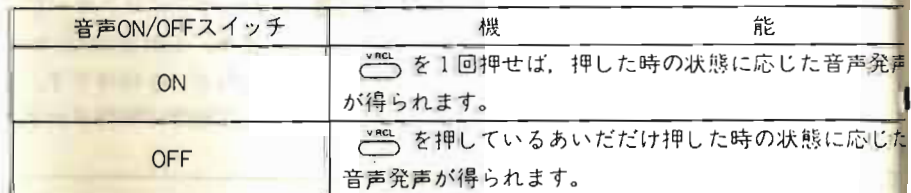 音声ON/OFFスイッチ
機 能
ON
V RCL を1回押せば，押した時の状態に応じた音声発声
が得られます。
OFF
V RCL を押しているあいだだけ押した時の状態に応じた
音声発声が得られます。